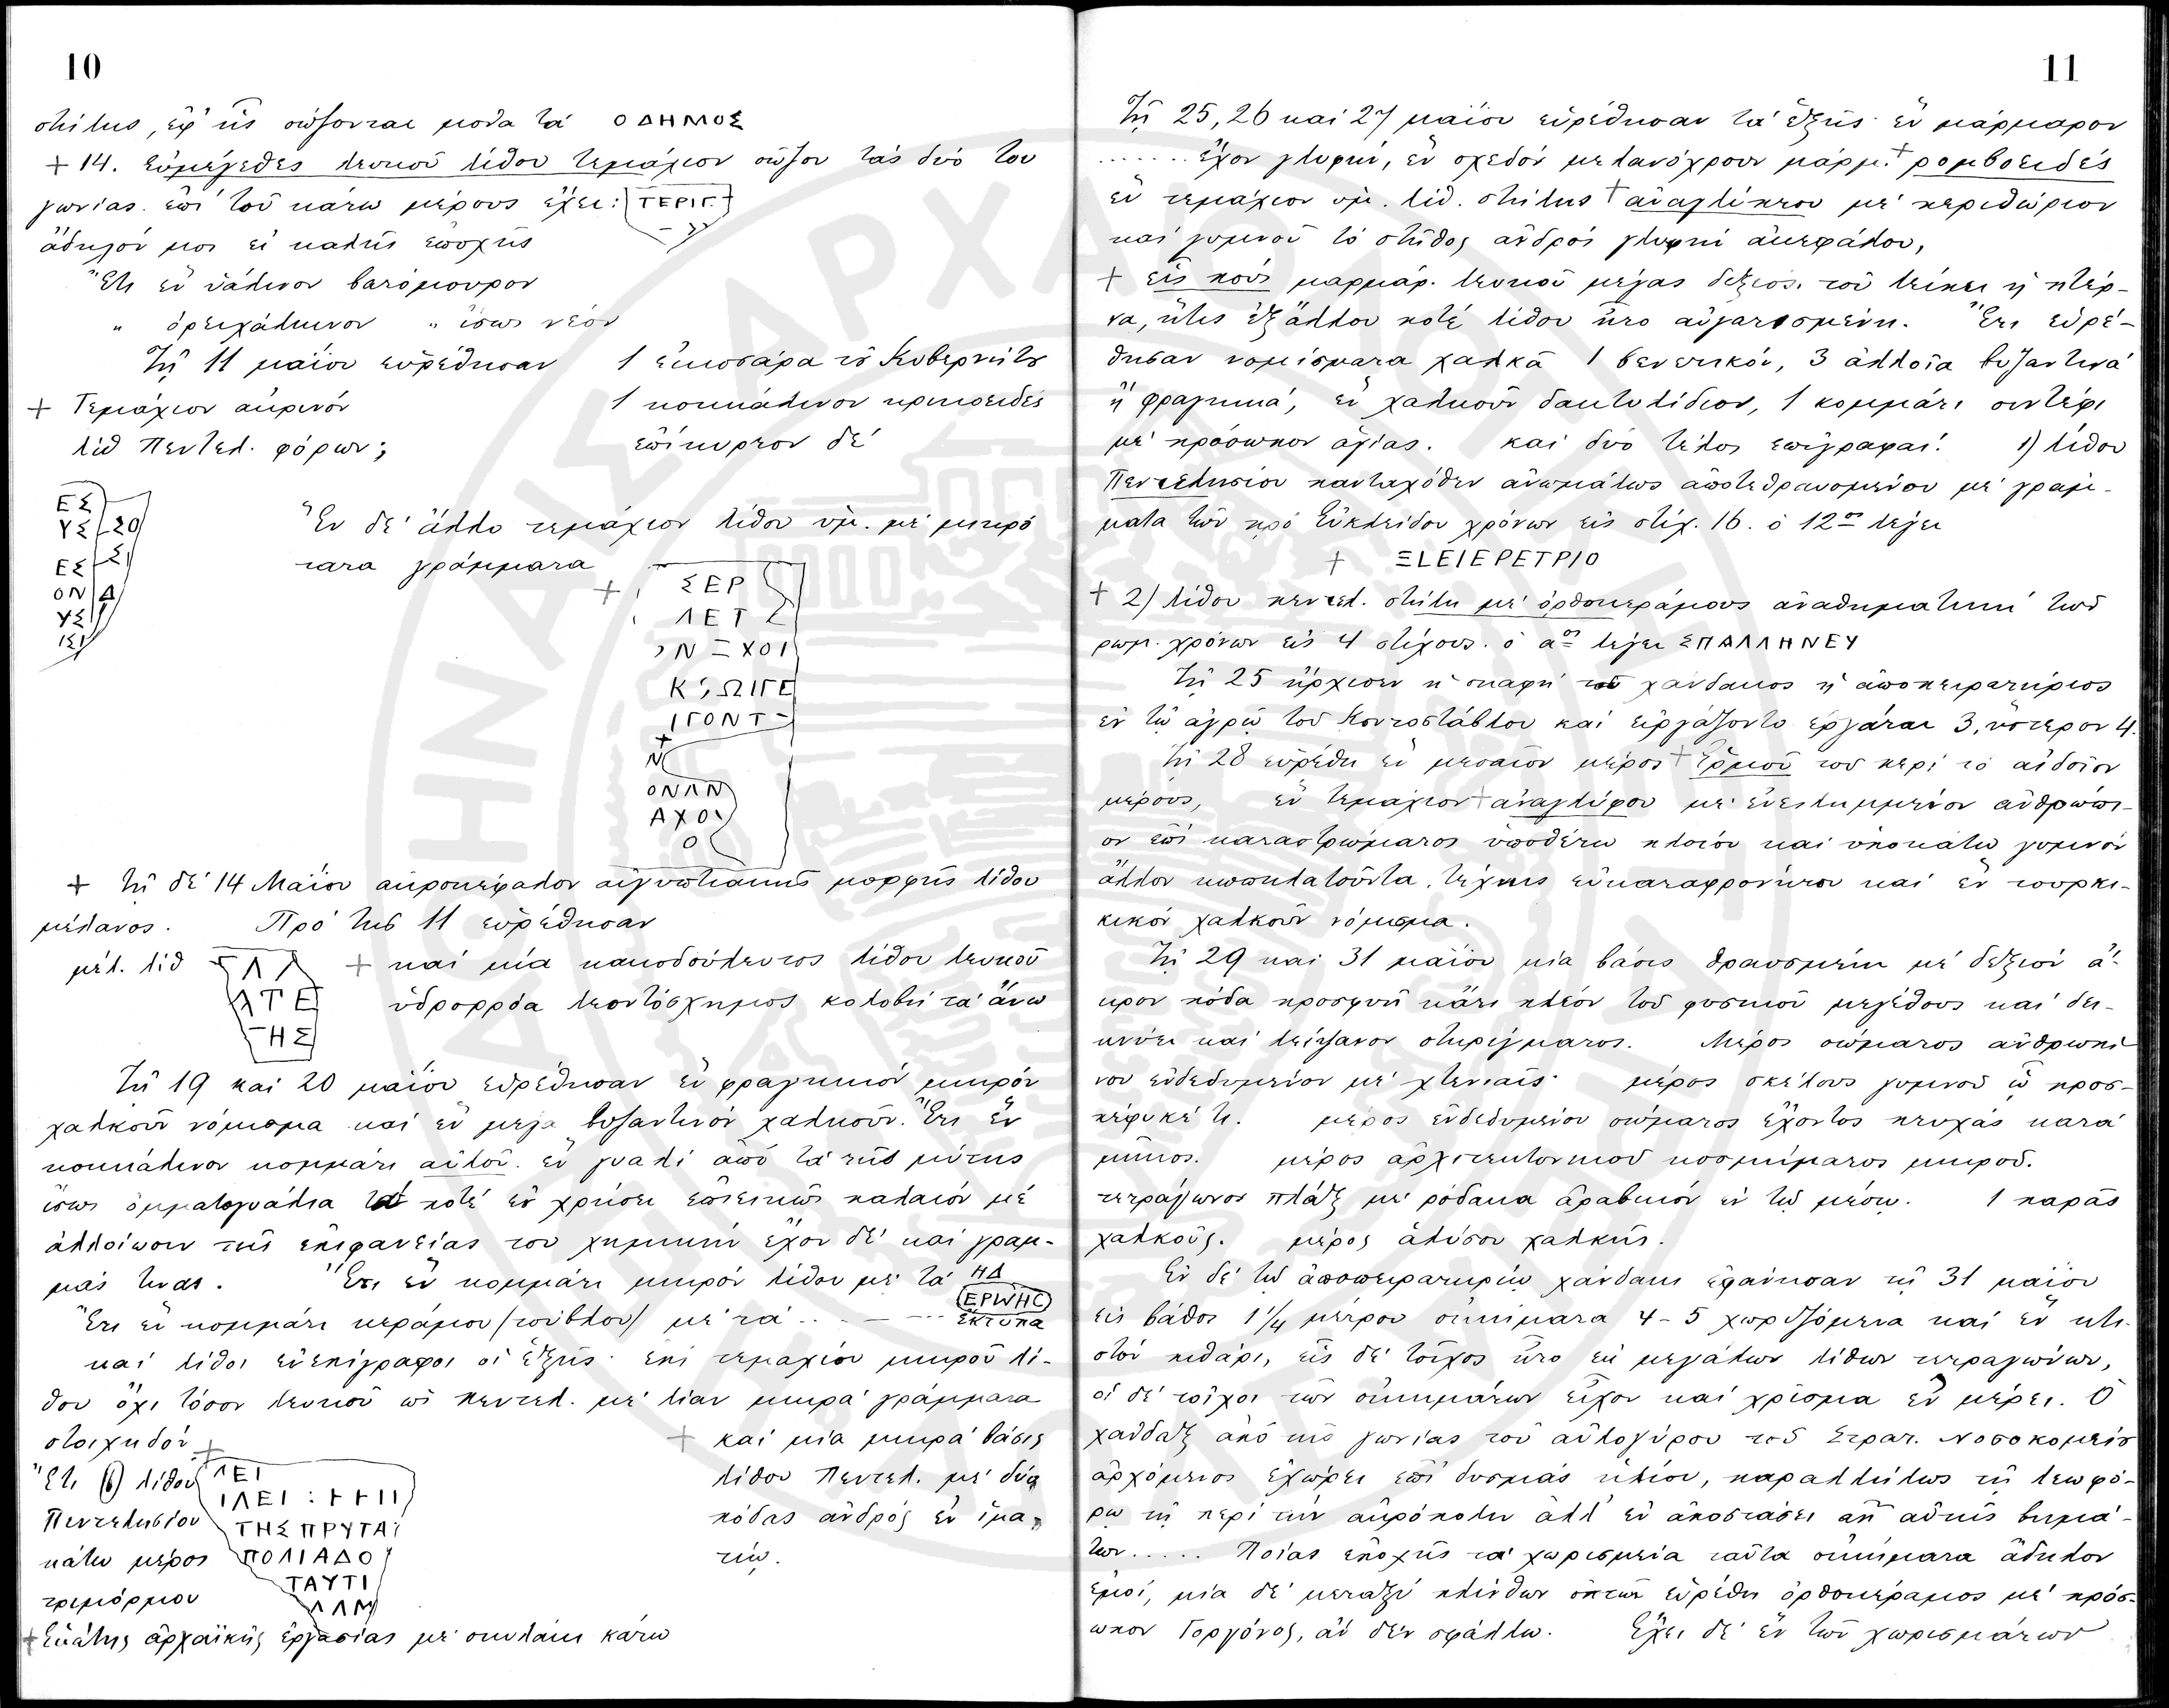 10
στήλης, ἐφ' ἧς σώζονται μόνα τά ΟΔΗΜΟΣ
+ 14. εὐμέγεθες λευκοῦ λίθου τεμάχιον σῶζον τάς δύο του
γωνίας. ἐπί τοῦ κάτω μέρους ἔχει: ΤΕΡΙΓ
ἄδηλόν μοι εἰ καλῆς ἐποχῆς
Ἔτι ἕν ὑάλινον βαζόμουρον
" ὀρειχάλκινον " ἴσως νέον
Τῇ 11 μαΐου εὑρέθησαν 1 εἰκοσάρα τοῦ Κυβερνήτου
+ Τεμάχιον ἀκρινόν 1 κοκκάλινον κρικοειδές
λίθ Πεντελ. φόρων; ἐπίκυρτον δέ
ΕΣ
ΥΣ 20
ΕΣ Σ
ΟΝ Δ
ΥΣ
ΙΣΙ
Ἕν δέ ἄλλο τεμάχιον λίθου ὑμ. μέ μικρό
τατα γράμματα
+ ΣΕΡ
ΛΕΤ Σ
ΟΝΞΧΟΙ
Κ ΩΙΓΕ
ΙΓΟΝΤ
+
Ν
ΟΝΛΝ
ΑΧΟΙ
Ο
+ τῇ δέ 14 Μαΐου ἀκροκέφαλον αἰγυπτιακῆς μορφῆς λίθου
μέλανος. Πρό τῆς 11 εὑρέθησαν
μέλ. λίθ + καί μία κακοδούλευτος λίθου λευκοῦ
ΓΛΛ
ΛΤΕ ὑδρορρόα λεοντόσχημος κολοβή τά ἄνω
ΤΗΣ
Τῇ 19 καί 20 μαΐου εὑρέθησαν ἕν φραγκικόν μικρόν
χαλκοῦν νόμισμα καί ἕν μεγα βυζαντινόν χαλκοῦν. Ἔτι ἕν
κοκκάλινον κομμάτι αὐλοῦ. ἕν γυαλί ἀπό τά τῆς μύτης
ἴσως ὀμματογυάλια ποτέ ἐν χρήσει ἐπιεικῶς παλαιόν μέ
ἀλλοίωσιν τῆς ἐπιφανείας του χημικήν ἔχον δέ καί γραμ-
μάς τινας. Ἔτι ἕν κομμάτι μικρόν λίθου μέ τά ΗΔ
Ἔτι ἕν κομμάτι κεράμου (τούβλου) μέ τά ... — ... ΕΡΩΗС ἔκτυπα
καί λίθοι ἐνεπίγραφοι οἱ ἑξῆς· ἐπί τεμαχίου μικροῦ λί-
θου ὄχι τόσον λευκοῦ ὡς πεντελ. μέ λίαν μικρά γράμματα
στοιχηδόν + + καί μία μικρά βάσις
Ἔτι (6) λίθου ΛΕΙ λίθου Πεντελ. μέ δύο
ΙΛΕΙ : ͰͰΙΙ
Πεντελησίου ΤΗΣ ΠΡΥΤΑΙ πόδας ἀνδρός ἐν ἱμα-
κάτω μέρος ΠΟΛΙΑΔΟ τίῳ.
ΤΑΥΤΙ
τριμόρμιου ΛΛΜ
+ Ἑκάτης ἀρχαϊκῆς ἐργασίας μέ σκυλάκι κάτω
11
Τῇ 25, 26 καί 27 μαΐου εὑρέθησαν τά ἑξῆς· ἕν μάρμαρον
....... ἔχον γλυφήν, ἕν σχεδόν μελανόχρουν μάρμ. + ρομβοειδές
ἕν τεμάχιον ὑμ. λίθ. στήλης + ἀναγλύπτου μέ περιθώριον
καί γυμνοῦ τό στῆθος ἀνδρός γλυφή ἀκεφάλου,
+ εἷς πούς μαρμάρ. λευκοῦ μέγας δεξιός. τοῦ λείπει ἡ πτέρ-
να, ἥτις ἐξ ἄλλου ποτέ λίθου ἦτο αὐγατισμένη. Ἔτι εὑρέ-
θησαν νομίσματα χαλκᾶ 1 βενετικόν, 3 ἀλλοῖα βυζαντινά
ἤ φραγκικά, ἕν χαλκοῦν δακτυλίδιον, 1 κομμάτι σιντέφι
μέ πρόσωπον ἁγίας. καί δύο τέλος ἐπιγραφαί. 1) λίθου
Πεντελησίου πανταχόθεν ἀνωμάλως ἀποτεθραυσμένου μέ γράμ-
ματα τῶν πρό Εὐκλείδου χρόνων εἰς στίχ. 16. ὁ 12ος λέγει
+ ΞLΕΙΕΡΕΤΡΙΟ
+ 2) λίθου πεντελ. στήλη μέ ὀρθοκεράμους ἀναθηματική τῶν
ρωμ. χρόνων εἰς 4 στίχους. ὁ αος λέγει ΣΠΑΛΛΗΝΕΥ
Τῇ 25 ἤρχισεν ἡ σκαφή τοῦ χάνδακος ἡ ἀποπειρατήριος
ἐν τῷ ἀγρῷ τοῦ Κοντοσταύλου καί εἰργάζοντο ἐργάται 3, ὕστερον 4.
Τῇ 28 εὑρέθη ἕν μεσαῖον μέρος + Ἑρμοῦ τοῦ περί τό αἰδοῖον
μέρους, ἕν τεμάχιον + ἀναγλύφου μέ ἐνεσκυμμένον ἀνθρώπι-
ον ἐπί καταστρώματος ὑποθέτω πλοίου καί ὑποκάτω γυμνόν
ἄλλον κωπηλατοῦντα. τέχνης εὐκαταφρονήτου καί ἕν τουρκι-
κικόν χαλκοῦν νόμισμα.
Τῇ 29 καί 31 μαΐου μία βάσις θραυσμένη μέ δεξιόν ἄ-
κρον πόδα προσφυῆ κἄτι πλέον τοῦ φυσικοῦ μεγέθους καί δει-
κνύει καί λείψανον στηρίγματος. Μέρος σώματος ἀνθρωπί
νου ἐνδεδυμένου μέ χτενιαῖς· μέρος σκέλους γυμνοῦ ᾧ προσ-
πέφυκέ τι. μέρος ἐνδεδυμένου σώματος ἔχοντος πτυχάς κατά
μῆκος. μέρος ἀρχιτεκτονικοῦ κοσμήματος μικροῦ.
τετράγωνος πλάξ μέ ρόδακα ἀραβικόν ἐν τῷ μέσῳ. 1 παρᾶς
χαλκοῦς. μέρος ἁλύσου χαλκῆς.
Ἐν δέ τῷ ἀποπειρατηρίῳ χάνδακι ἐφάνησαν τῇ 31 μαΐου
εἰς βάθος 1 1/4 μέτρου οἰκήματα 4-5 χωριζόμενα καί ἕν κτι-
στόν πιθάρι, εἷς δέ τοῖχος ἦτο ἐκ μεγάλων λίθων τετραγώνων,
οἱ δέ τοῖχοι τῶν οἰκημάτων εἶχον καί χρῖσμα ἐν μέρει. Ὁ
χάνδαξ ἀπό τῆς γωνίας τοῦ αὐλογύρου τοῦ Στρατ. Νοσοκομείου
ἀρχόμενος ἐχώρει ἐπί δυσμάς ἡλίου, παραλλήλως τῇ λεωφό-
ρῳ τῇ περί τήν ἀκρόπολιν ἀλλ' ἐν ἀποστάσει ἀπ' αὐτῆς βημά-
των..... Ποίας ἐποχῆς τά χωρισμένα ταῦτα οἰκήματα ἄδηλον
ἐμοί, μία δέ μεταξύ πλίνθων ὀπτῶν εὑρέθη ὀρθοκέραμος μέ πρόσ-
ωπον Γοργόνος, ἄν δέν σφάλλω. Ἔχει δέ ἕν τῶν χωρισμάτων